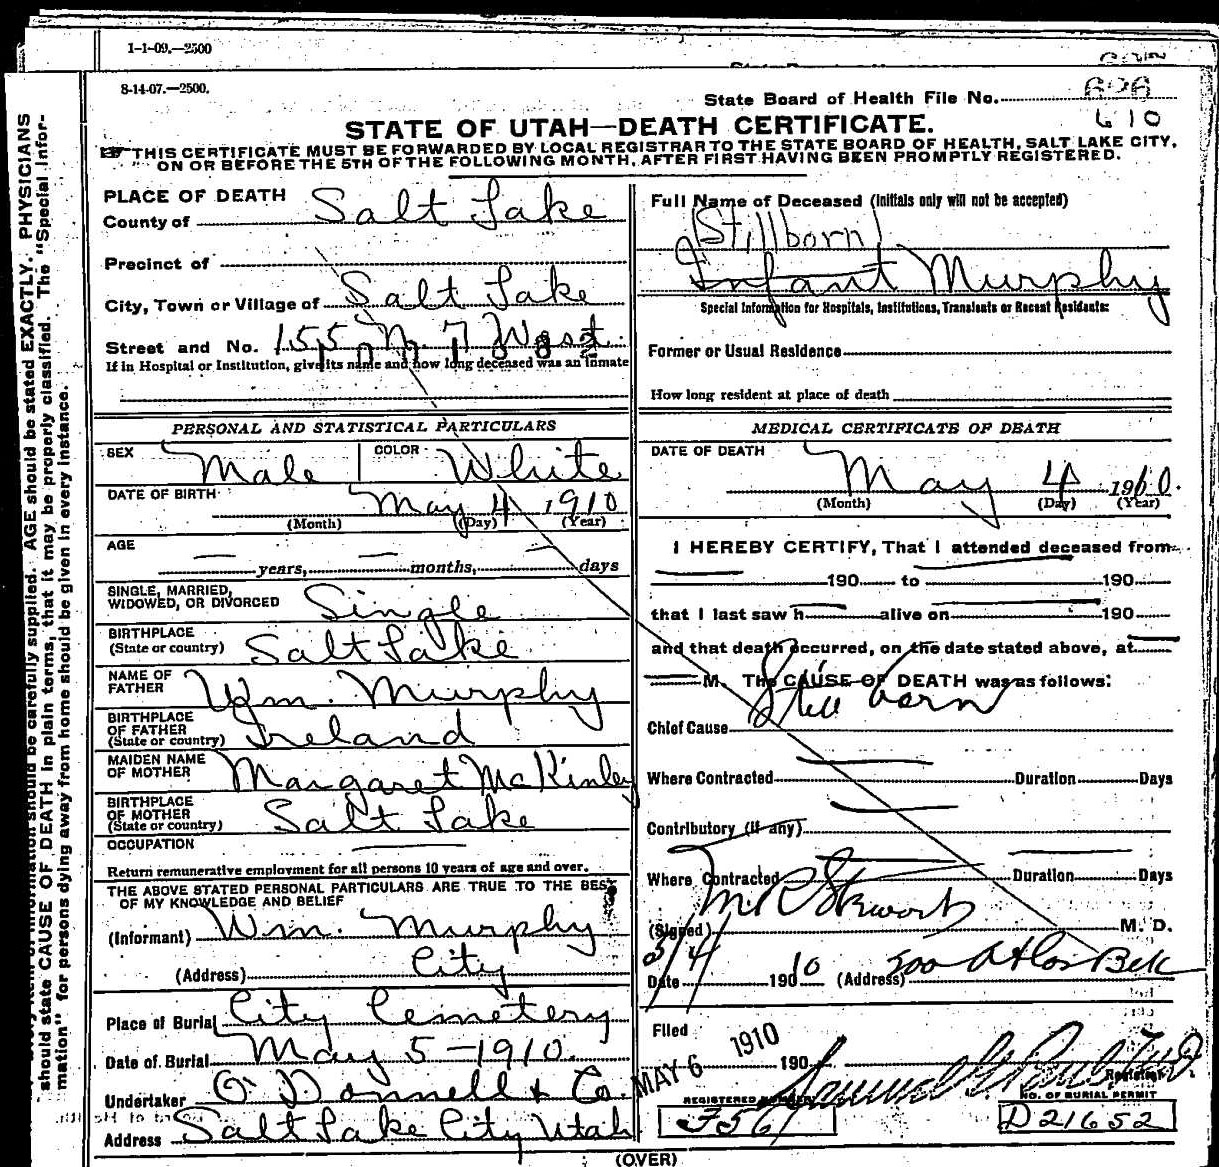 1-1-09.—2500
8-14-07.—2500.
State Board of Health File No. 606
610
STATE OF UTAH—DEATH CERTIFICATE.
THIS CERTIFICATE MUST BE FORWARDED BY LOCAL REGISTRAR TO THE STATE BOARD OF HEALTH, SALT LAKE CITY,
ON OR BEFORE THE 5TH OF THE FOLLOWING MONTH, AFTER FIRST HAVING BEEN PROMPTLY REGISTERED.
PLACE OF DEATH
County of Salt Lake
Precinct of
City, Town or Village of Salt Lake
Street and No. 155 N. 7 West
If in Hospital or Institution, give its name and how long deceased was an inmate
PERSONAL AND STATISTICAL PARTICULARS
SEX Male COLOR White
DATE OF BIRTH May 4 1910
(Month) (Day) (Year)
AGE
— years, — months, — days
SINGLE, MARRIED,
WIDOWED, OR DIVORCED Single
BIRTHPLACE
(State or country) Salt Lake
NAME OF
FATHER Wm. Murphy
BIRTHPLACE
OF FATHER
(State or country) Ireland
MAIDEN NAME
OF MOTHER Margaret McKinley
BIRTHPLACE
OF MOTHER
(State or country) Salt Lake
OCCUPATION —
Return remunerative employment for all persons 10 years of age and over.
THE ABOVE STATED PERSONAL PARTICULARS ARE TRUE TO THE BEST
OF MY KNOWLEDGE AND BELIEF
(Informant) Wm. Murphy
(Address) City
Place of Burial City Cemetery
Date of Burial May 5-1910.
Undertaker O'Donnell & Co.
Address Salt Lake City Utah
Full Name of Deceased (Initials only will not be accepted)
(Stillborn)
Infant Murphy
Special Information for Hospitals, Institutions, Transients or Recent Residents:
Former or Usual Residence
How long resident at place of death
MEDICAL CERTIFICATE OF DEATH
DATE OF DEATH
May 4 1910.
(Month) (Day) (Year)
I HEREBY CERTIFY, That I attended deceased from
— 190 to — 190
that I last saw h — alive on — 190
and that death occurred, on the date stated above, at —
— M. The CAUSE OF DEATH was as follows:
Still born
Chief Cause
Where Contracted — Duration Days
Contributory (if any) —
Where Contracted — Duration — Days
(Signed) M. D.
Date 5/4 1910 (Address) 500 Atlas Blk
Filed MAY 6 1910 190
Registrar
REGISTERED NUMBER
F561
NO. OF BURIAL PERMIT
D21652
(OVER)
should state CAUSE OF DEATH in plain terms, that it may be properly classified. The "Special Infor-
mation" for persons dying away from home should be given in every instance.
information should be carefully supplied. AGE should be stated EXACTLY. PHYSICIANS